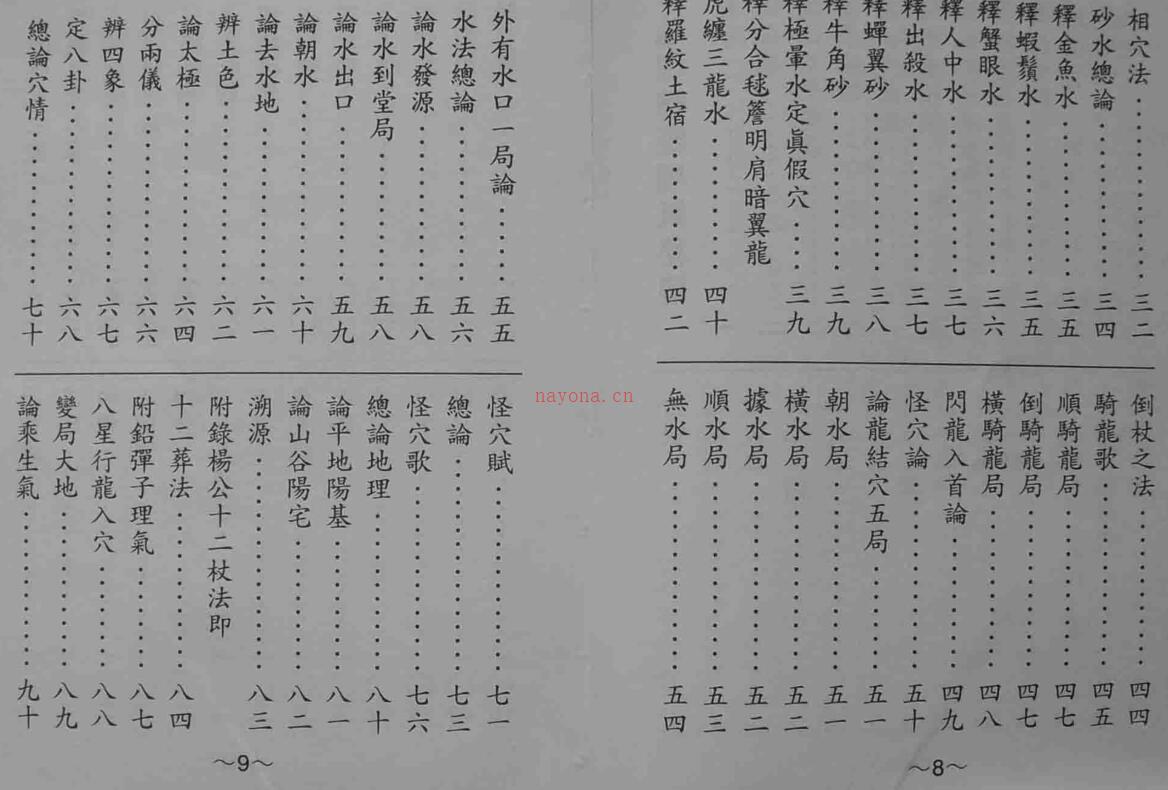 相穴法……三二
砂水總論……三四
釋金魚水……三五
釋蝦鬚水……三五
釋蟹眼水……三六
釋人中水……三七
釋出殺水……三七
釋蟬翼砂……三八
釋牛角砂……三九
釋極暈水定眞假穴……三九
釋分合毬簷明肩暗翼龍
虎纏三龍水……四十
釋羅紋土宿……四二
倒杖之法……四四
騎龍歌……四五
順騎龍局……四七
倒騎龍局……四七
橫騎龍局……四八
閃龍入首論……四九
怪穴論……五十
論龍結穴五局……五一
朝水局……五一
橫水局……五二
據水局……五二
順水局……五三
無水局……五四
～8～
外有水口一局論……五五
水法總論……五六
論水發源……五八
論水到堂局……五八
論水出口……五九
論朝水……六十
論去水地……六一
辨土色……六二
論太極……六四
分兩儀……六六
辨四象……六七
定八卦……六八
總論穴情……七十
怪穴賦……七一
總論……七三
怪穴歌……七六
總論地理……八十
論平地陽基……八一
論山谷陽宅……八二
溯源……八三
附錄楊公十二杖法即
十二葬法……八四
附鉛彈子理氣……八七
八星行龍入穴……八八
變局大地……八九
論乘生氣……九十
～9～
nayona.cn